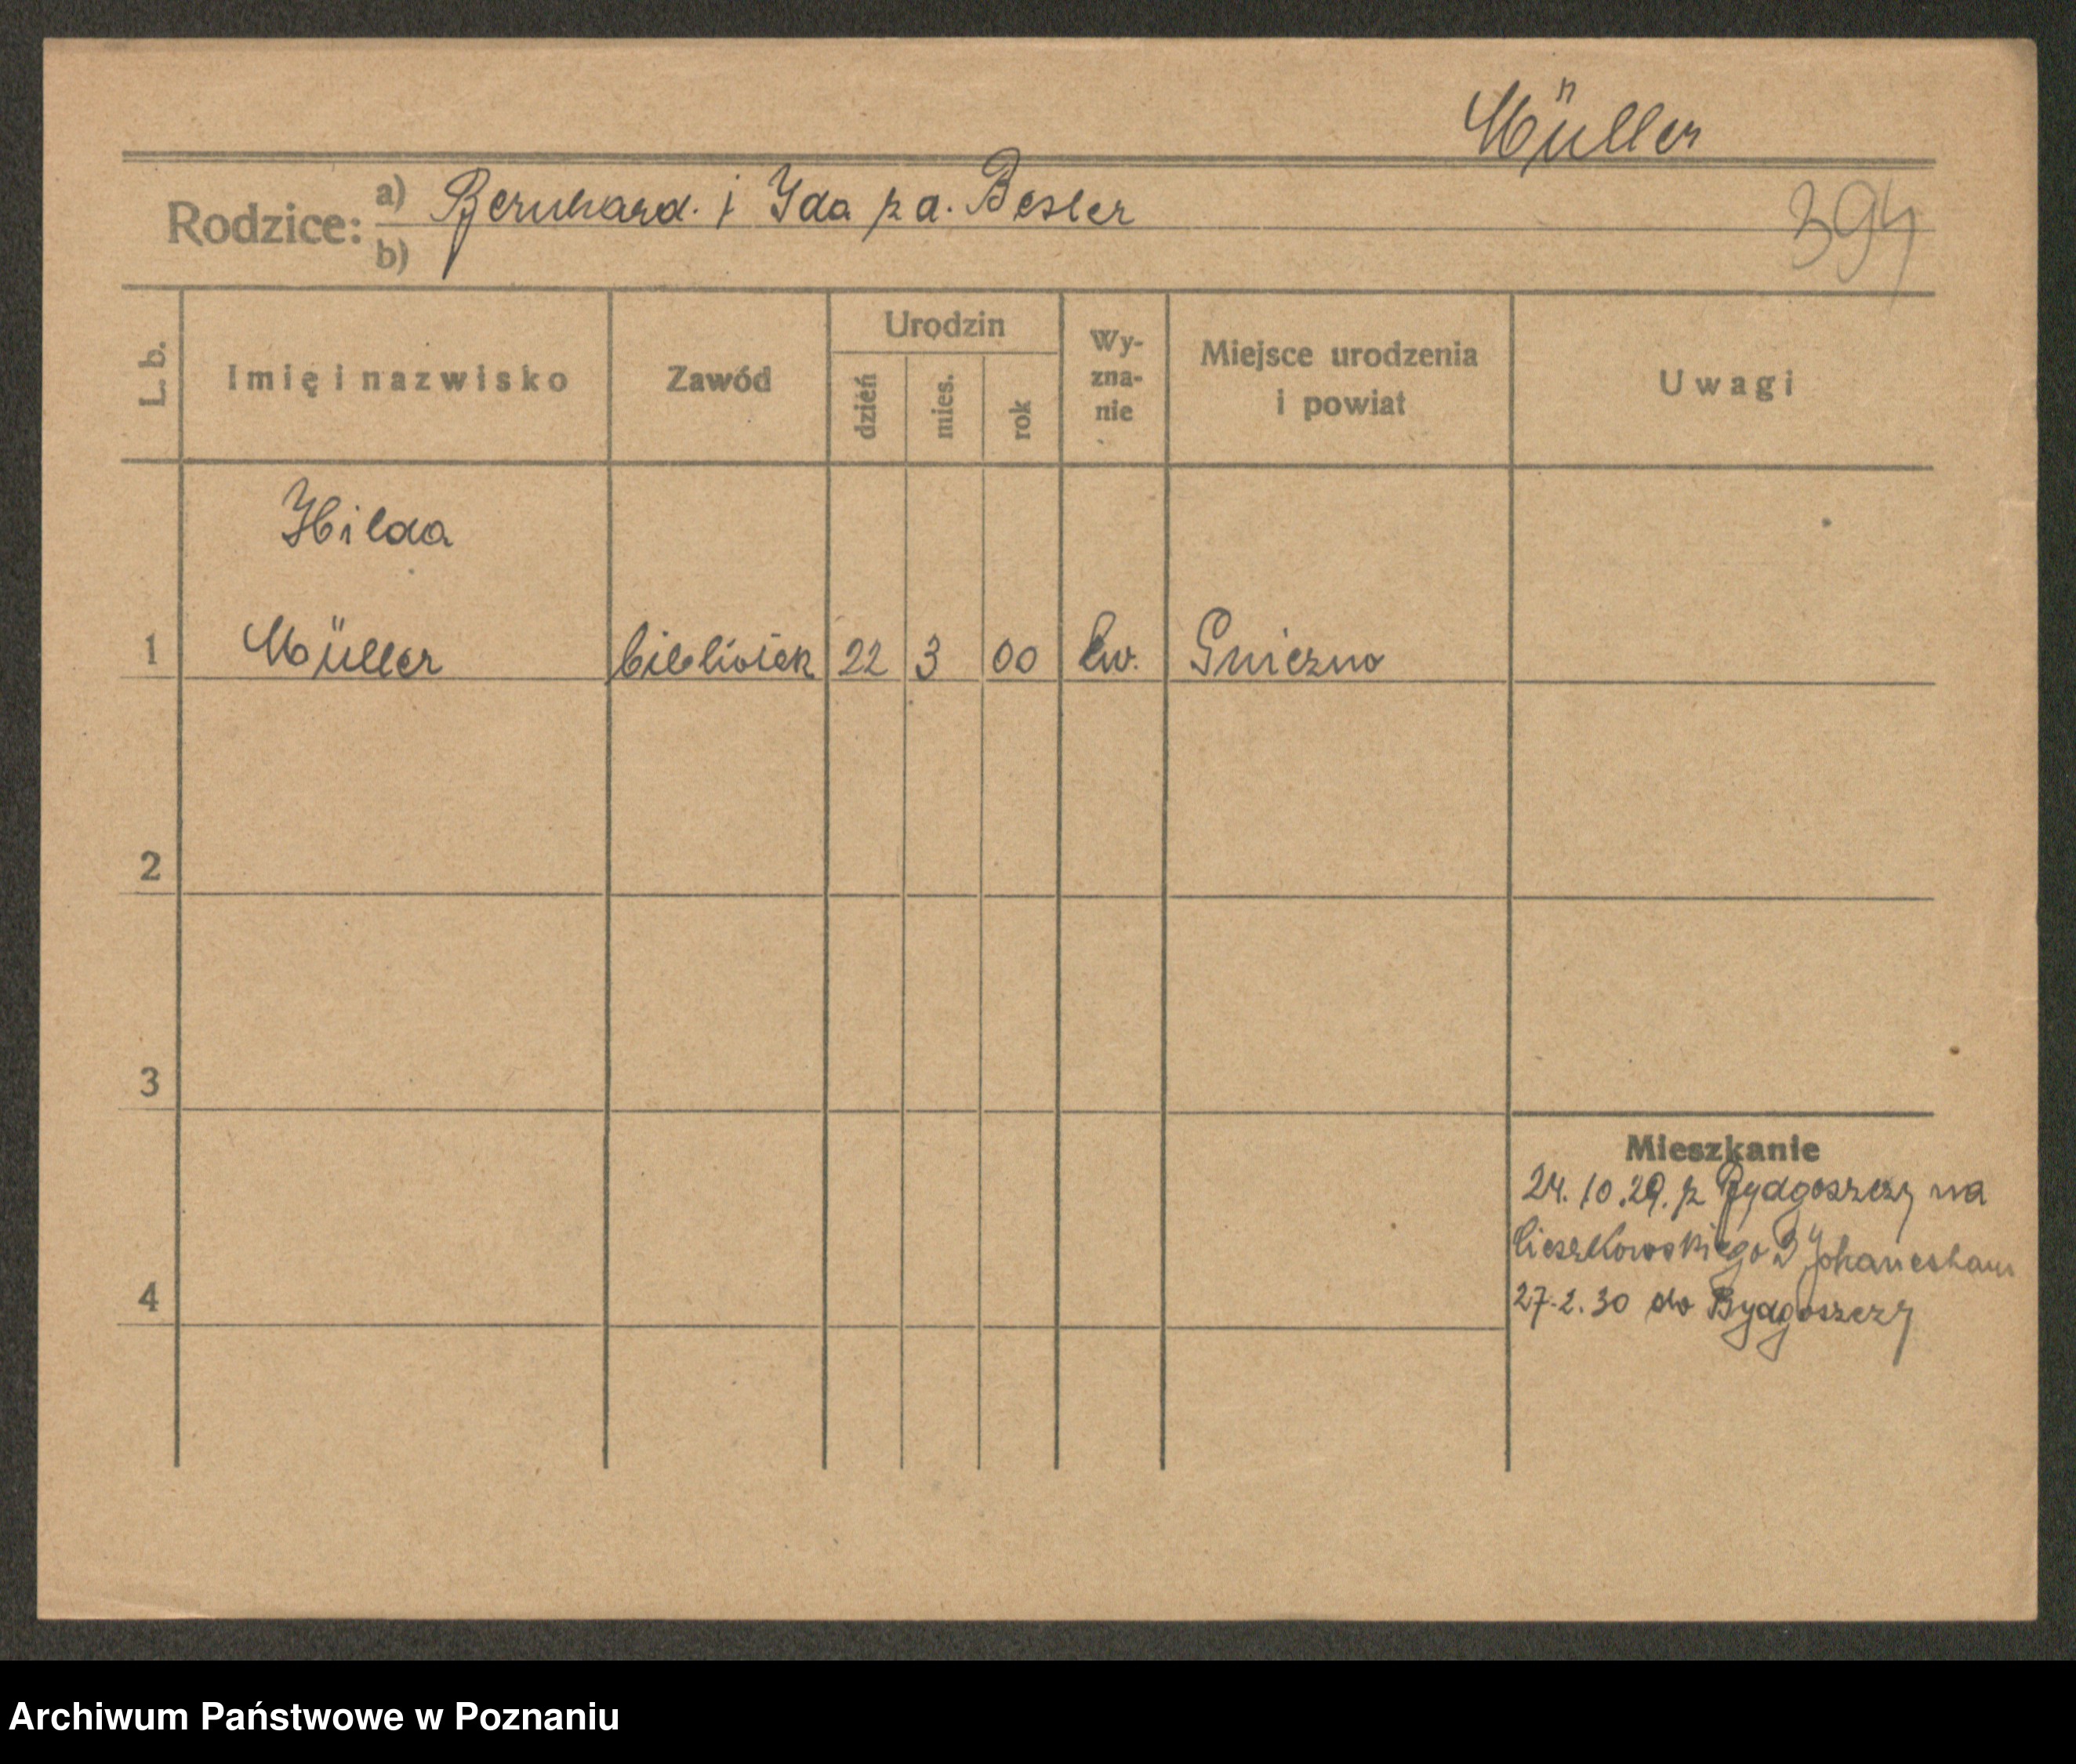 Müller
Rodzice: a) Bernhard. i Ida z d. Besler
b)
394
L. b.
Imię i nazwisko
Zawód
Urodzin
dzień
mies.
rok
Wy-
zna-
nie
Miejsce urodzenia
i powiat
Uwagi
Hilda
1 Müller 22 3 00 Ew. Gniezno
2
3
4
Mieszkanie
24. 10. 29. z Bydgoszczy na
Cieszkowskiego
27.2.30 do Bydgoszczy
Archiwum Państwowe w Poznaniu